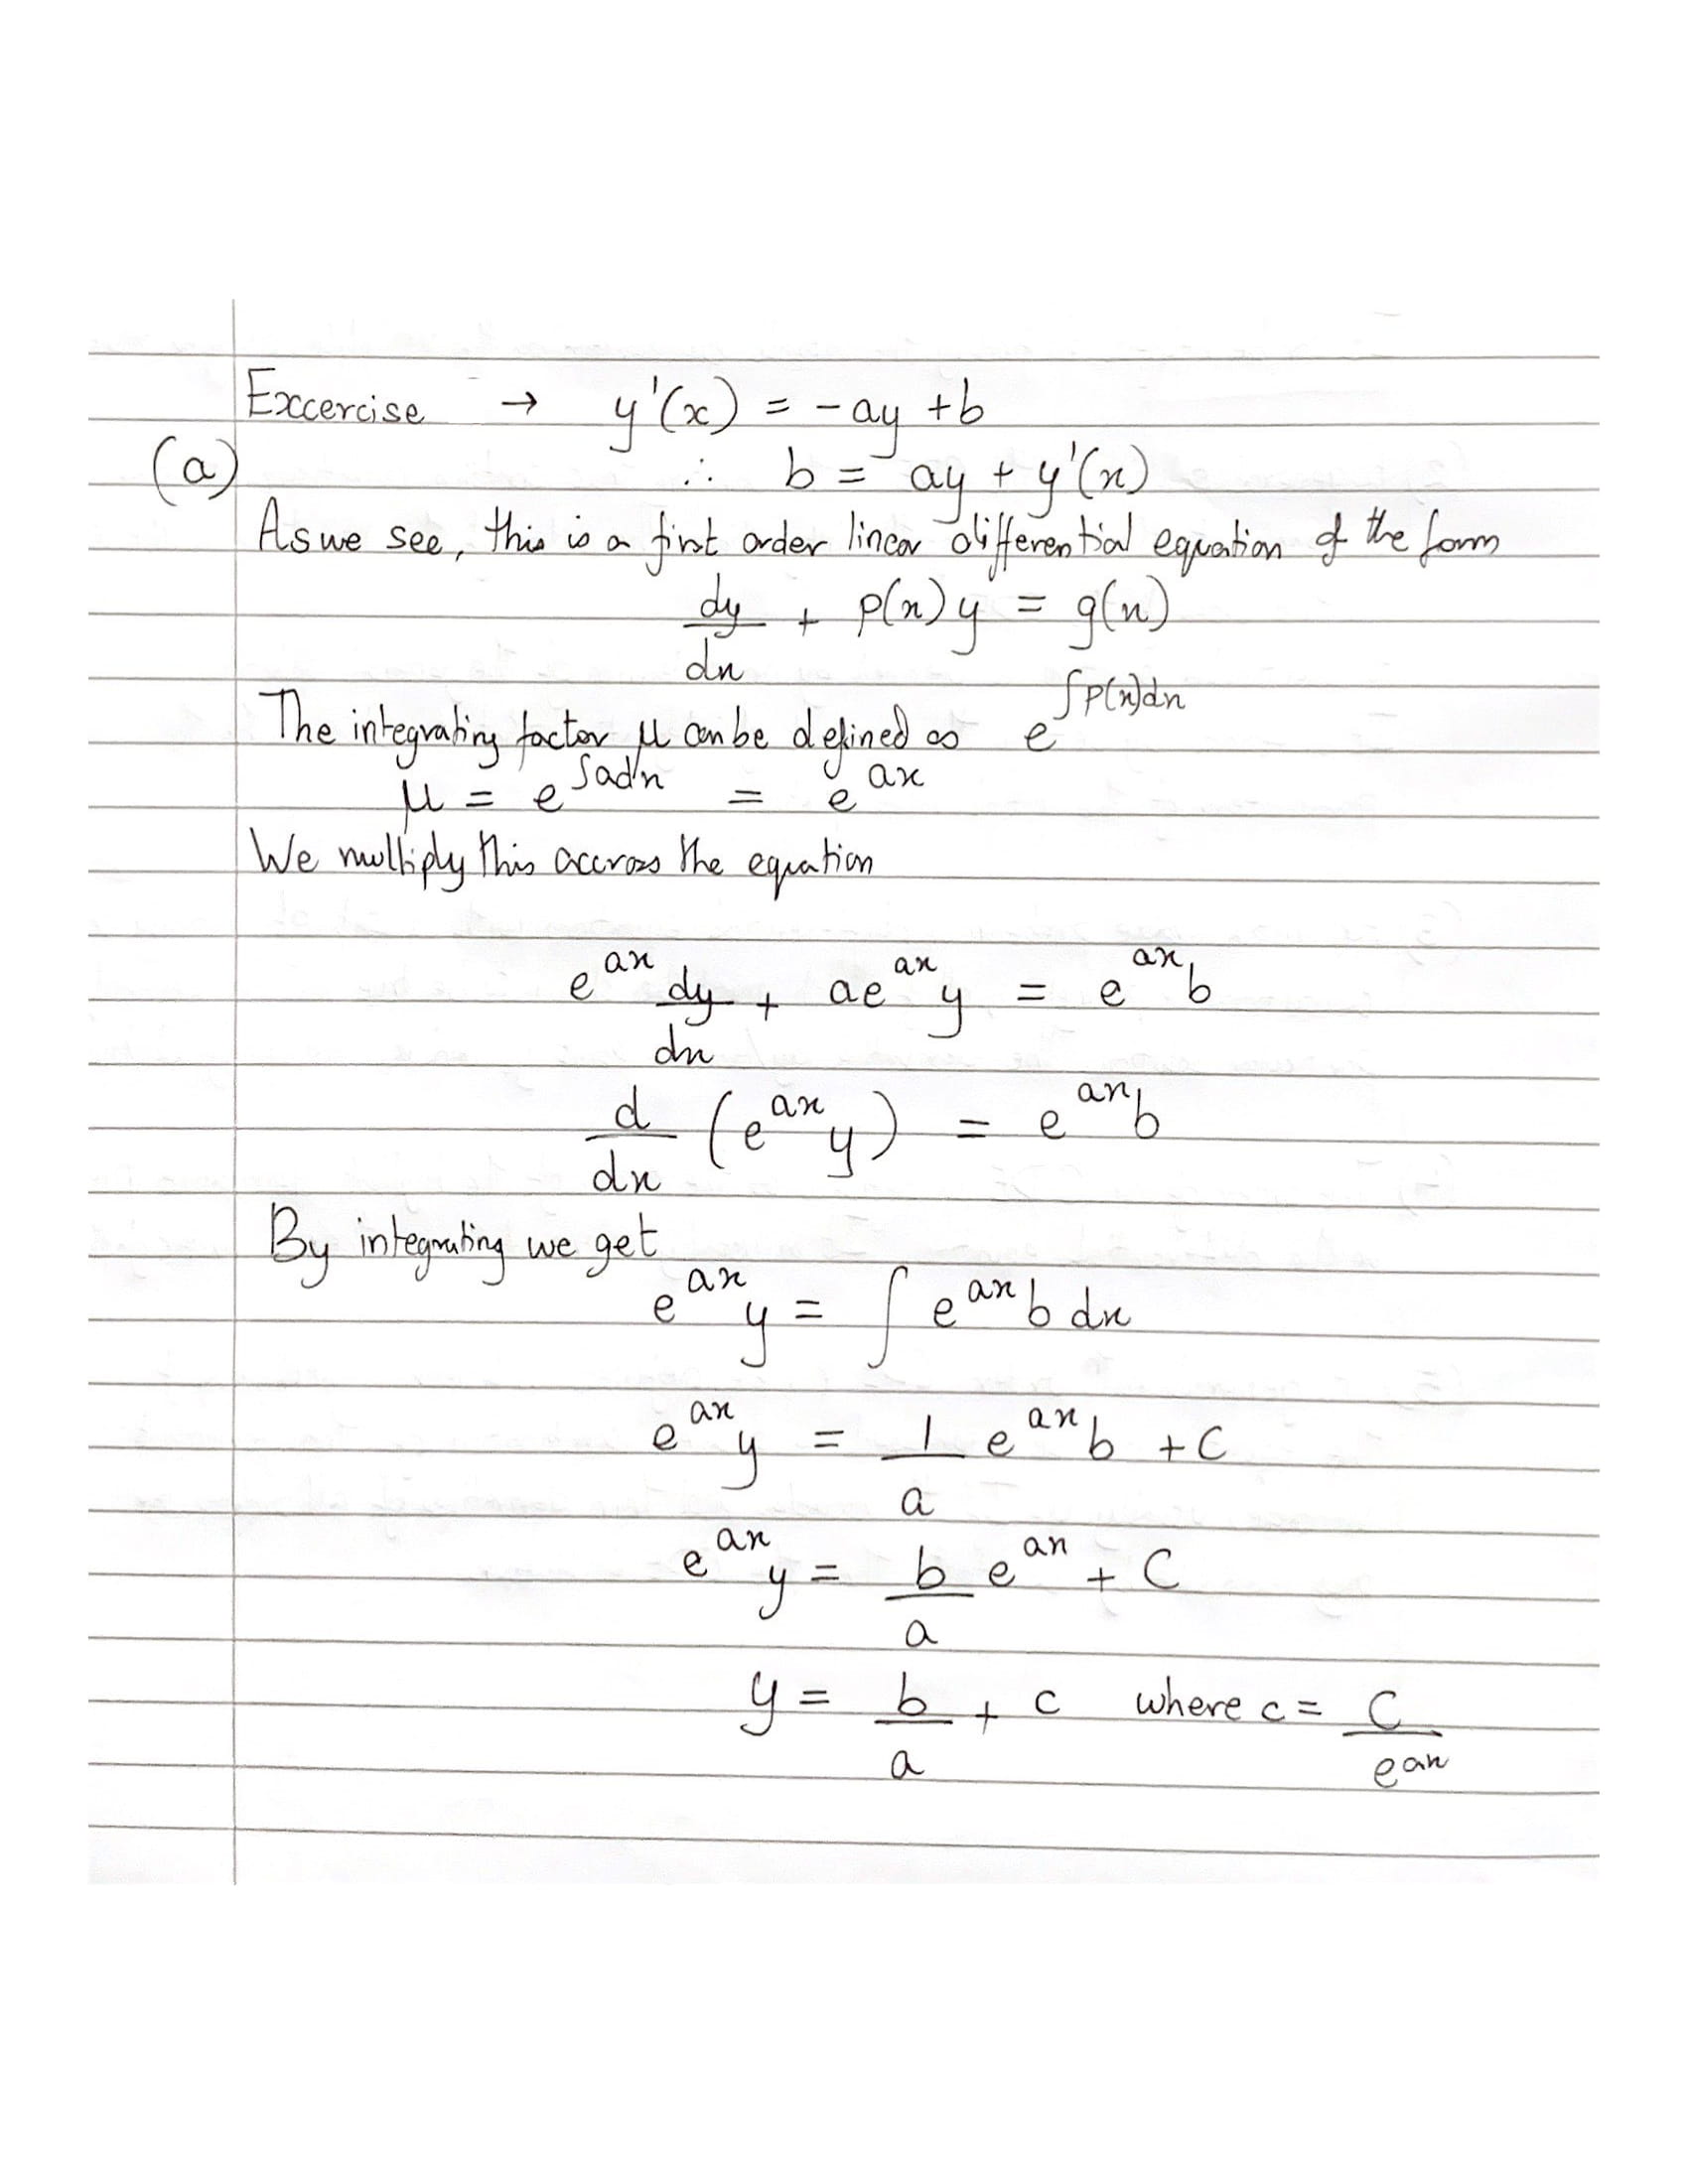 Excercise → y'(x) = -ay + b
(a) ∴ b = ay + y'(x)
As we see, this is a first order linear differential equation of the form
dy/dx + p(x)y = g(x)
The integrating factor μ can be defined as e^∫p(x)dx
μ = e^∫adx = e^ax
We multiply this accross the equation
e^ax dy/dx + ae^ax y = e^ax b
d/dx (e^ax y) = e^ax b
By integrating we get
e^ax y = ∫ e^ax b dx
e^ax y = 1/a e^ax b + C
e^ax y = b/a e^ax + C
y = b/a + c where c = C/e^ax